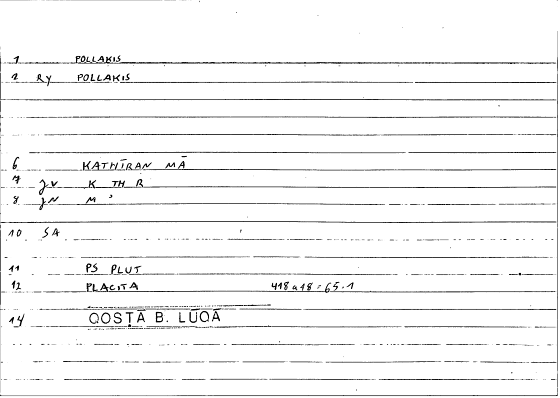 1 POLLAKIS
2 Ry POLLAKIS
6 KATHĪRAN MĀ
7 JV K TH R
8 JN M ʾ
10 SA
11 PS PLUT
12 PLACITA 418a18 : 65.1
14 QOSṬĀ B. LŪQĀ